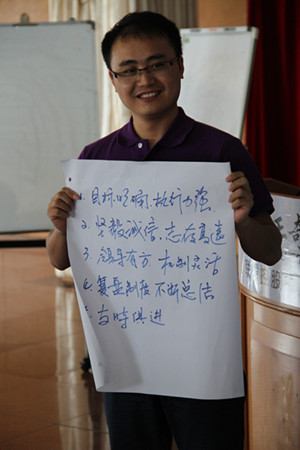 1. 目标明确，执行力强
2. 坚毅诚信，志存高远
3. 领导有方，机制灵活
4. 复盘制度 不断总结
5. 与时俱进